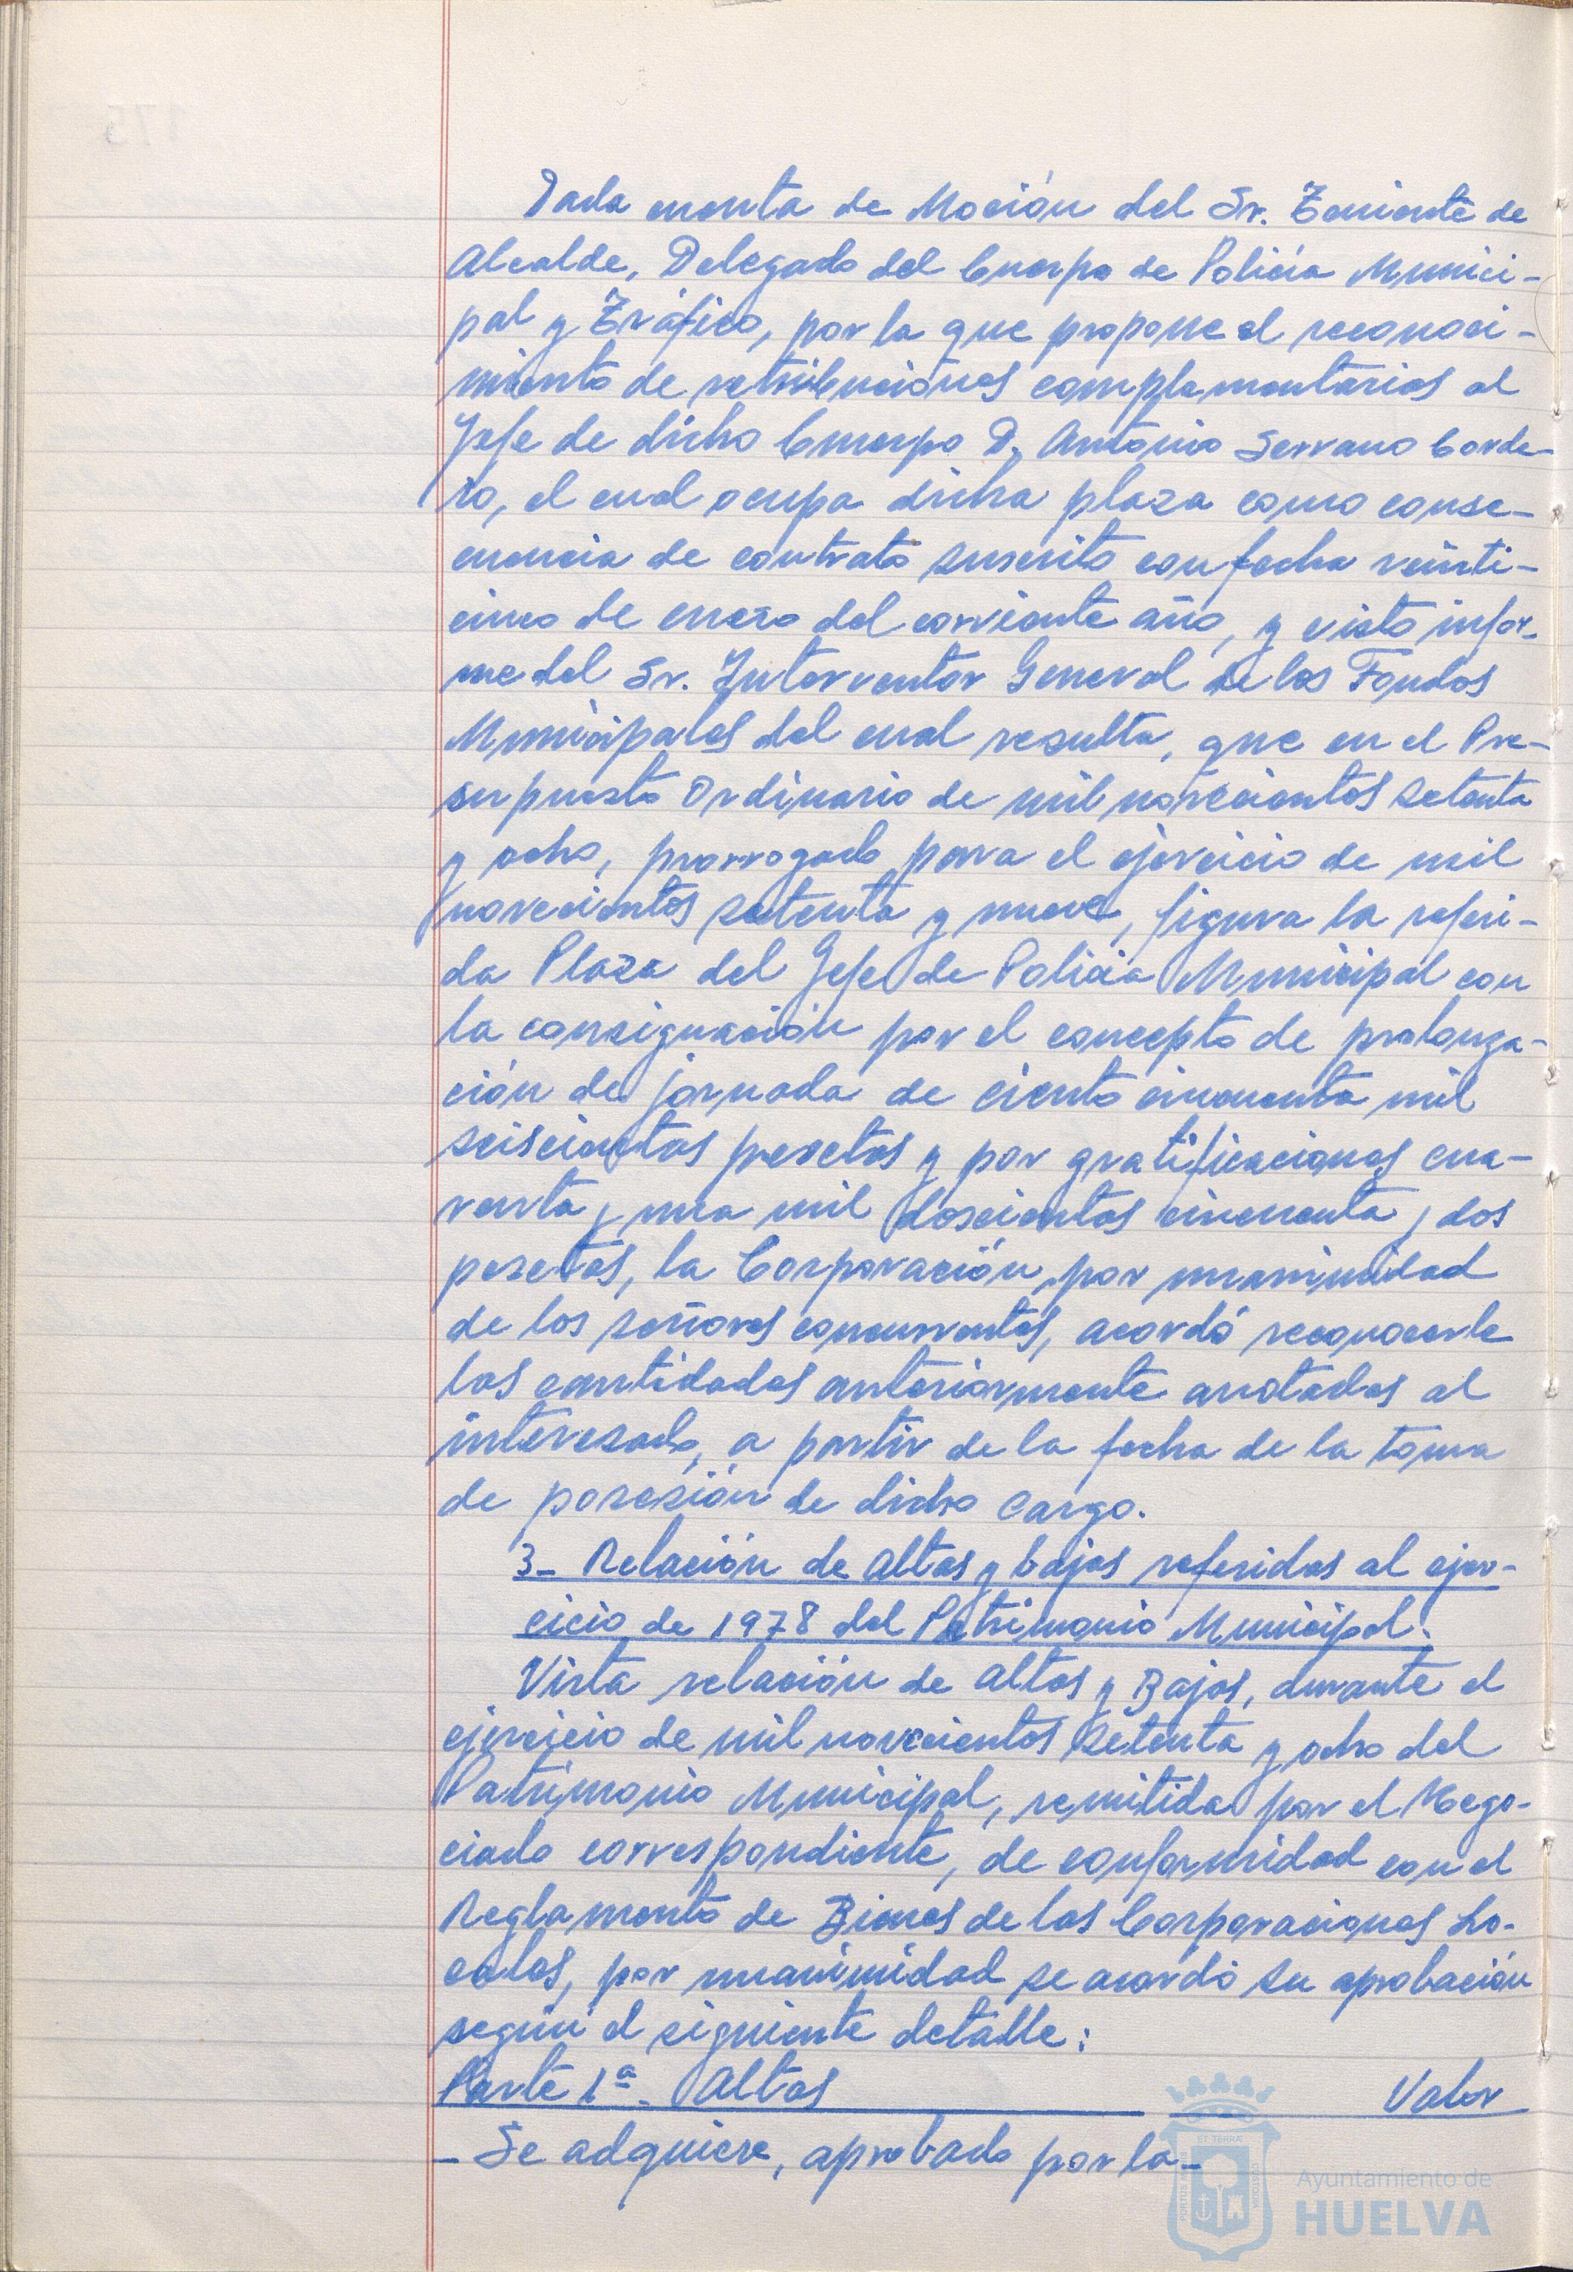 Dada cuenta de Moción del Sr. Teniente de
Alcalde, Delegado del Cuerpo de Policía Munici-
pal y Tráfico, por la que propone el reconoci-
miento de retribuciones complementarias al
Jefe de dicho Cuerpo D. Antonio Serrano Corde-
ro, el cual ocupa dicha plaza como conse-
cuencia de contrato suscrito con fecha veinti-
cinco de enero del corriente año, y visto infor-
me del Sr. Interventor General de los Fondos
Municipales del cual resulta, que en el Pre-
supuesto Ordinario de mil novecientos setenta
y ocho, prorrogado para el ejercicio de mil
novecientos setenta y nueve, figura la referi-
da Plaza del Jefe de Policía Municipal con
la consignación por el concepto de prolonga-
ción de jornada de ciento cincuenta mil
seiscientas pesetas y por gratificaciones cua-
renta y una mil doscientas cincuenta y dos
pesetas, la Corporación, por unanimidad
de los señores concurrentes, acordó reconocerle
las cantidades anteriormente anotadas al
interesado, a partir de la fecha de la toma
de posesión de dicho cargo.
3- Relación de altas y bajas referidas al ejer-
cicio de 1978 del Patrimonio Municipal.
Vista relación de altas y Bajas, durante el
ejercicio de mil novecientos setenta y ocho del
Patrimonio Municipal, remitida por el Nego-
ciado correspondiente, de conformidad con el
Reglamento de Bienes de las Corporaciones Lo-
cales, por unanimidad se acordó su aprobación
según el siguiente detalle:
Parte 1ª- Altas Valor
- Se adquiere, aprobado por la-
ET TERRAE
PORTUS MARIS
CUSTODIA
Ayuntamiento de
HUELVA